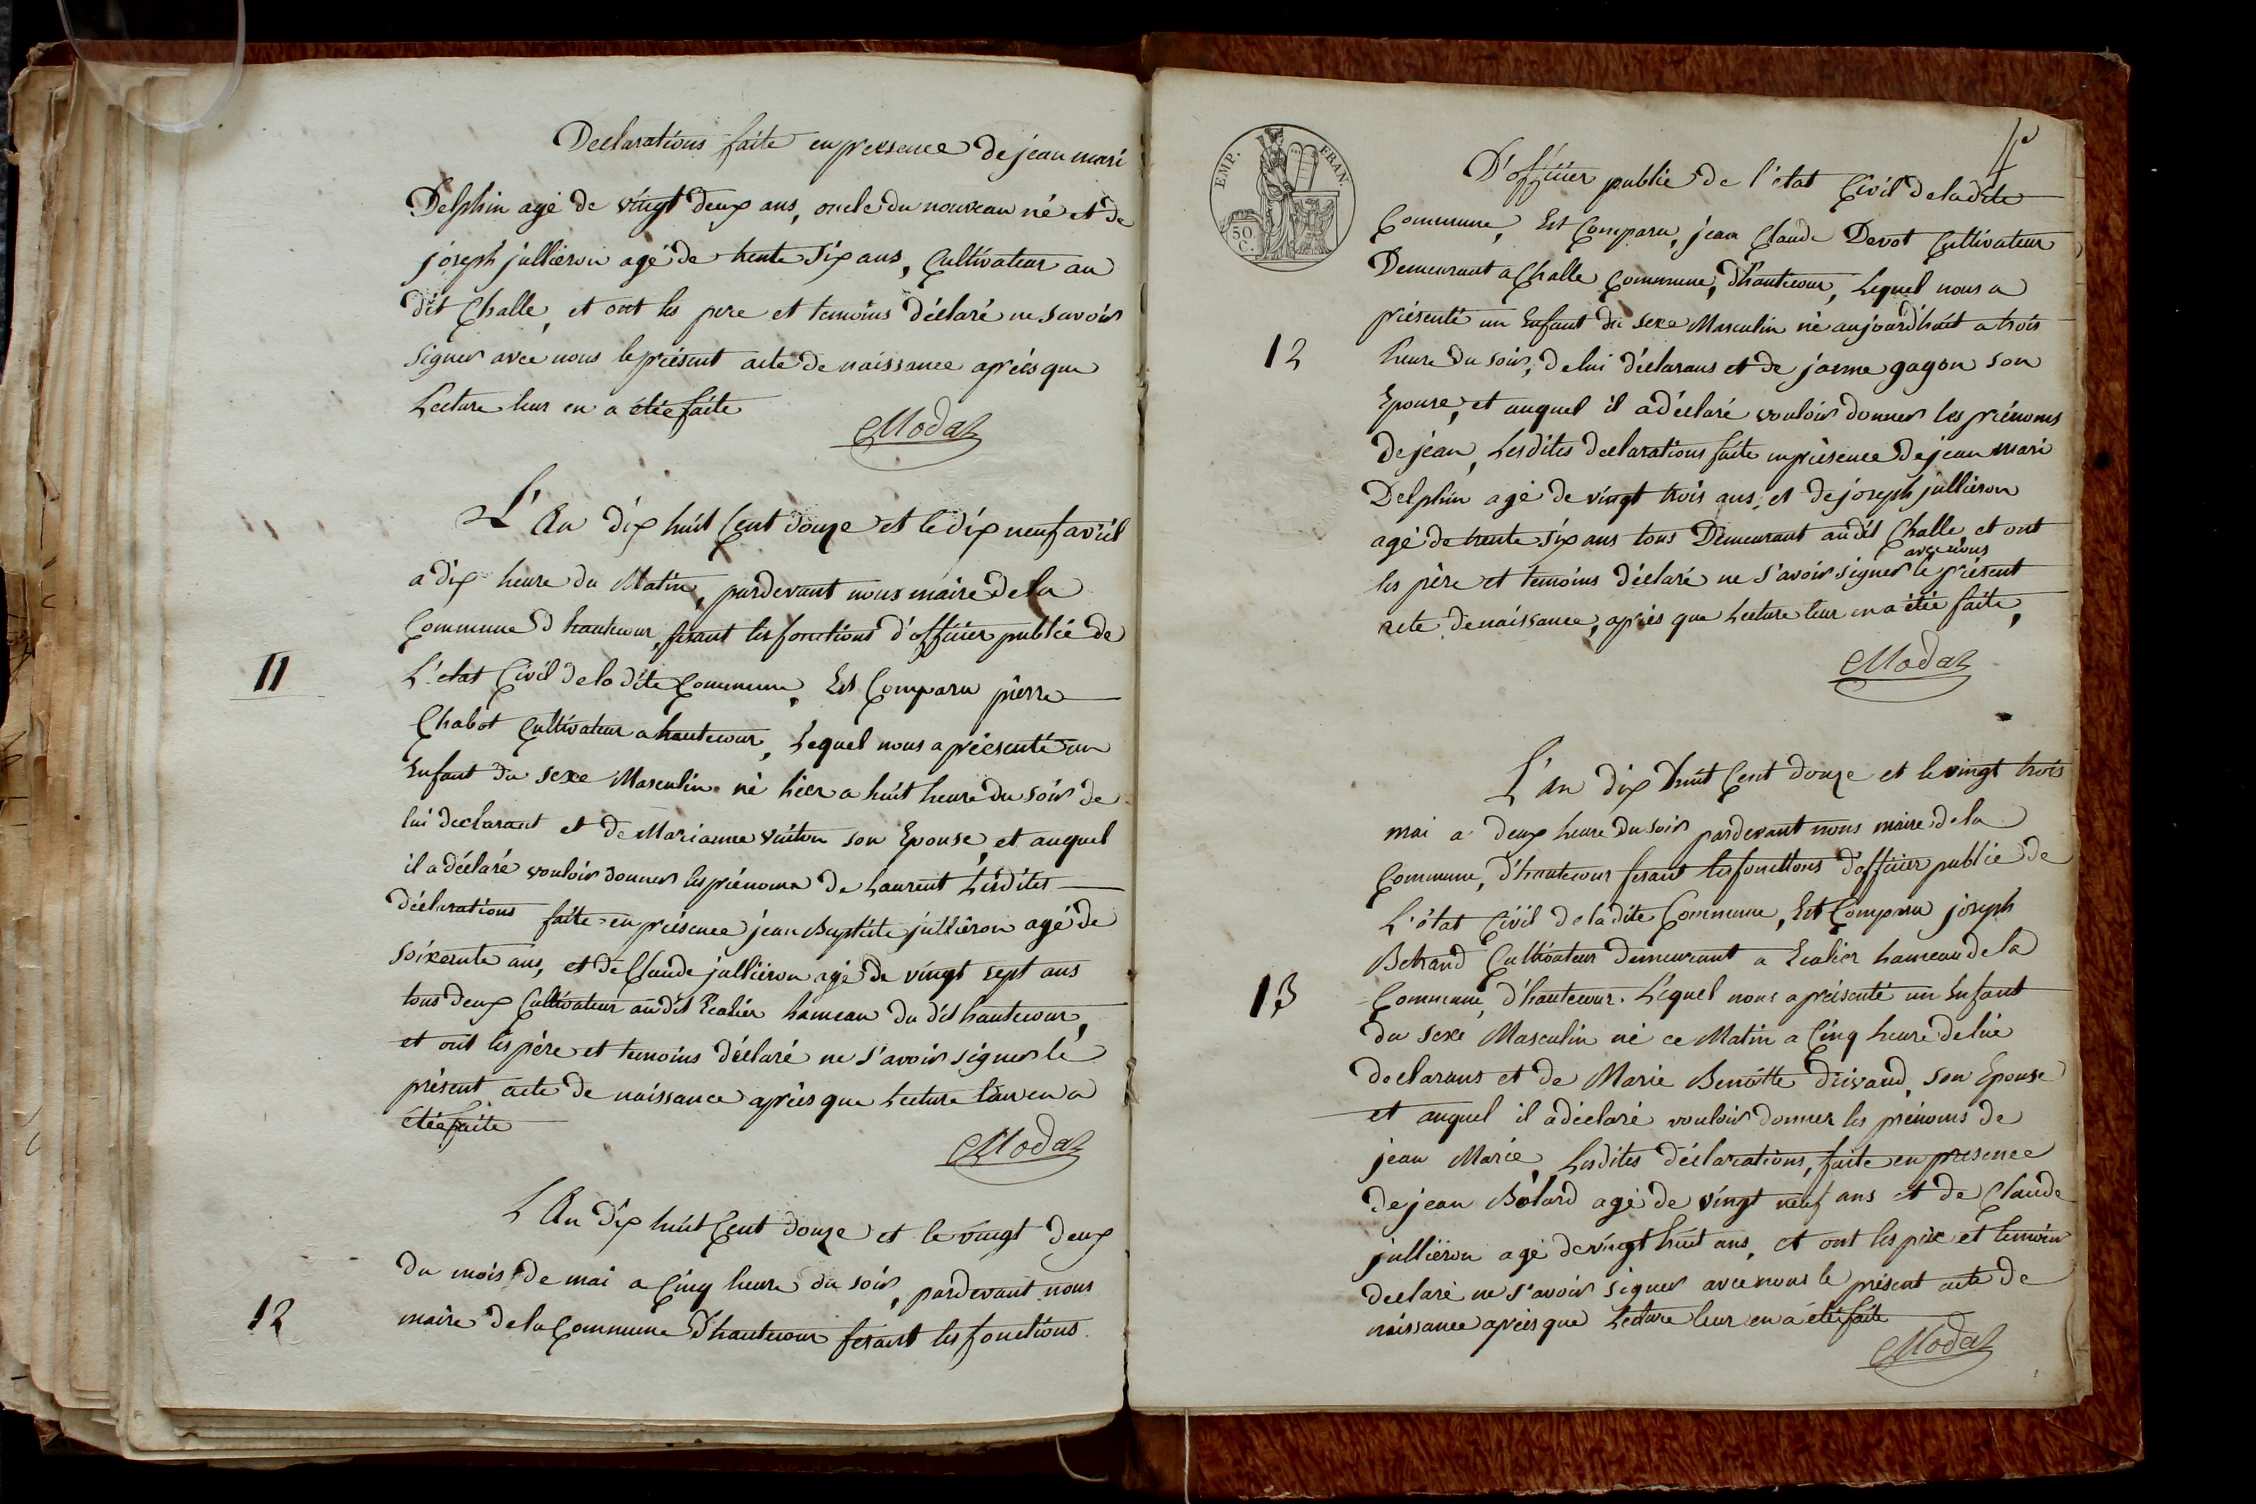 Declarations faite en presence de jean mari
Delphin agé de vingt deux ans, oncle du nouveau né et de
joseph jullieron agé de trente six ans, Cultivateur au
dit Challe, et ont les pere et temoins déclaré ne savoir
signer avec nous le présent acte de naissance après que
Lecture leur en a étée faite
Modaz
L'An dix huit Cent douze et le dix neuf avril
a dix heure du Matin, pardevant nous maire de la
Commune d'hautecour, fesant les fonctions d'officier public de
L'etat Civil de la dite Commune, Est Comparu pierre
11
Chabot Cultivateur a hautecour, Lequel nous a présenté un
Enfant du sexe Masculin né hier a huit heure du soir de
lui declarant et de Marianne son Epouse, et auquel
il a déclaré vouloir donner les prénoms de Laurent Lesdites
déclarations faite en présence jean Baptiste jullieron agé de
soixante ans, et de Claude jullieron agé de vingt sept ans
tous deux Cultivateur au dit Ecalier hameau du dit hautecour,
et ont les père et temoins déclaré ne s'avoir signer le
présent acte de naissance après que Lecture leur en a
étée faite
Modaz
L'An dix huit Cent douze et le vingt deux
du mois de mai a Cinq heure du soir, pardevant nous
12
maire de la Commune D'hautecour fesant les fonctions
4
EMP. FRAN.
50 C.
D'officier public de l'etat Civil de la dite
Commune, Est Comparu, jean Claude Devot Cultivateur
Demeurant a Challe Commune, D'hautecour, Lequel nous a
présenté un Enfant du sexe Masculin né aujourdhuit a trois
12
heure du soir, de lui déclarans et de jaune gagon son
Epouse, et auquel il a déclaré vouloir donner les prénoms
de jean, Lesdites declarations faite en présence de jean mari
Delphin agé de vingt trois ans, et de joseph jullieron
agé de trente six ans tous Demeurant audit Challe, et ont
avec nous
les père et temoins déclaré ne s'avoir signer le présent
acte de naissance, après que Lecture leur en a étée faite,
Modaz
L'an dix huit Cent douze et le vingt trois
mai a deux heure du soir pardevant nous maire de la
Commune, d'hautecour fesant les fonctions d'officier public de
L'état Civil de la dite Commune, Est Comparu joseph
Betrand Cultivateur demeurant a Ecalier hameau de la
13
Commune, d'hautecour. Lequel nous a présenté un Enfant
du sexe Masculin né ce Matin a Cinq heure de lui
declarans et de Marie Benoitte son Epouse
et auquel il a déclaré vouloir donner les prénoms de
jean Marie, Lesdites déclarations, faite en presence
de jean Bolard agé de vingt neuf ans et de Claude
jullieron agé de vingt huit ans, et ont les père et temoin
declaré ne s'avoir signer avec nous le présent acte de
naissance après que Lecture leur en a étée faite
Modaz